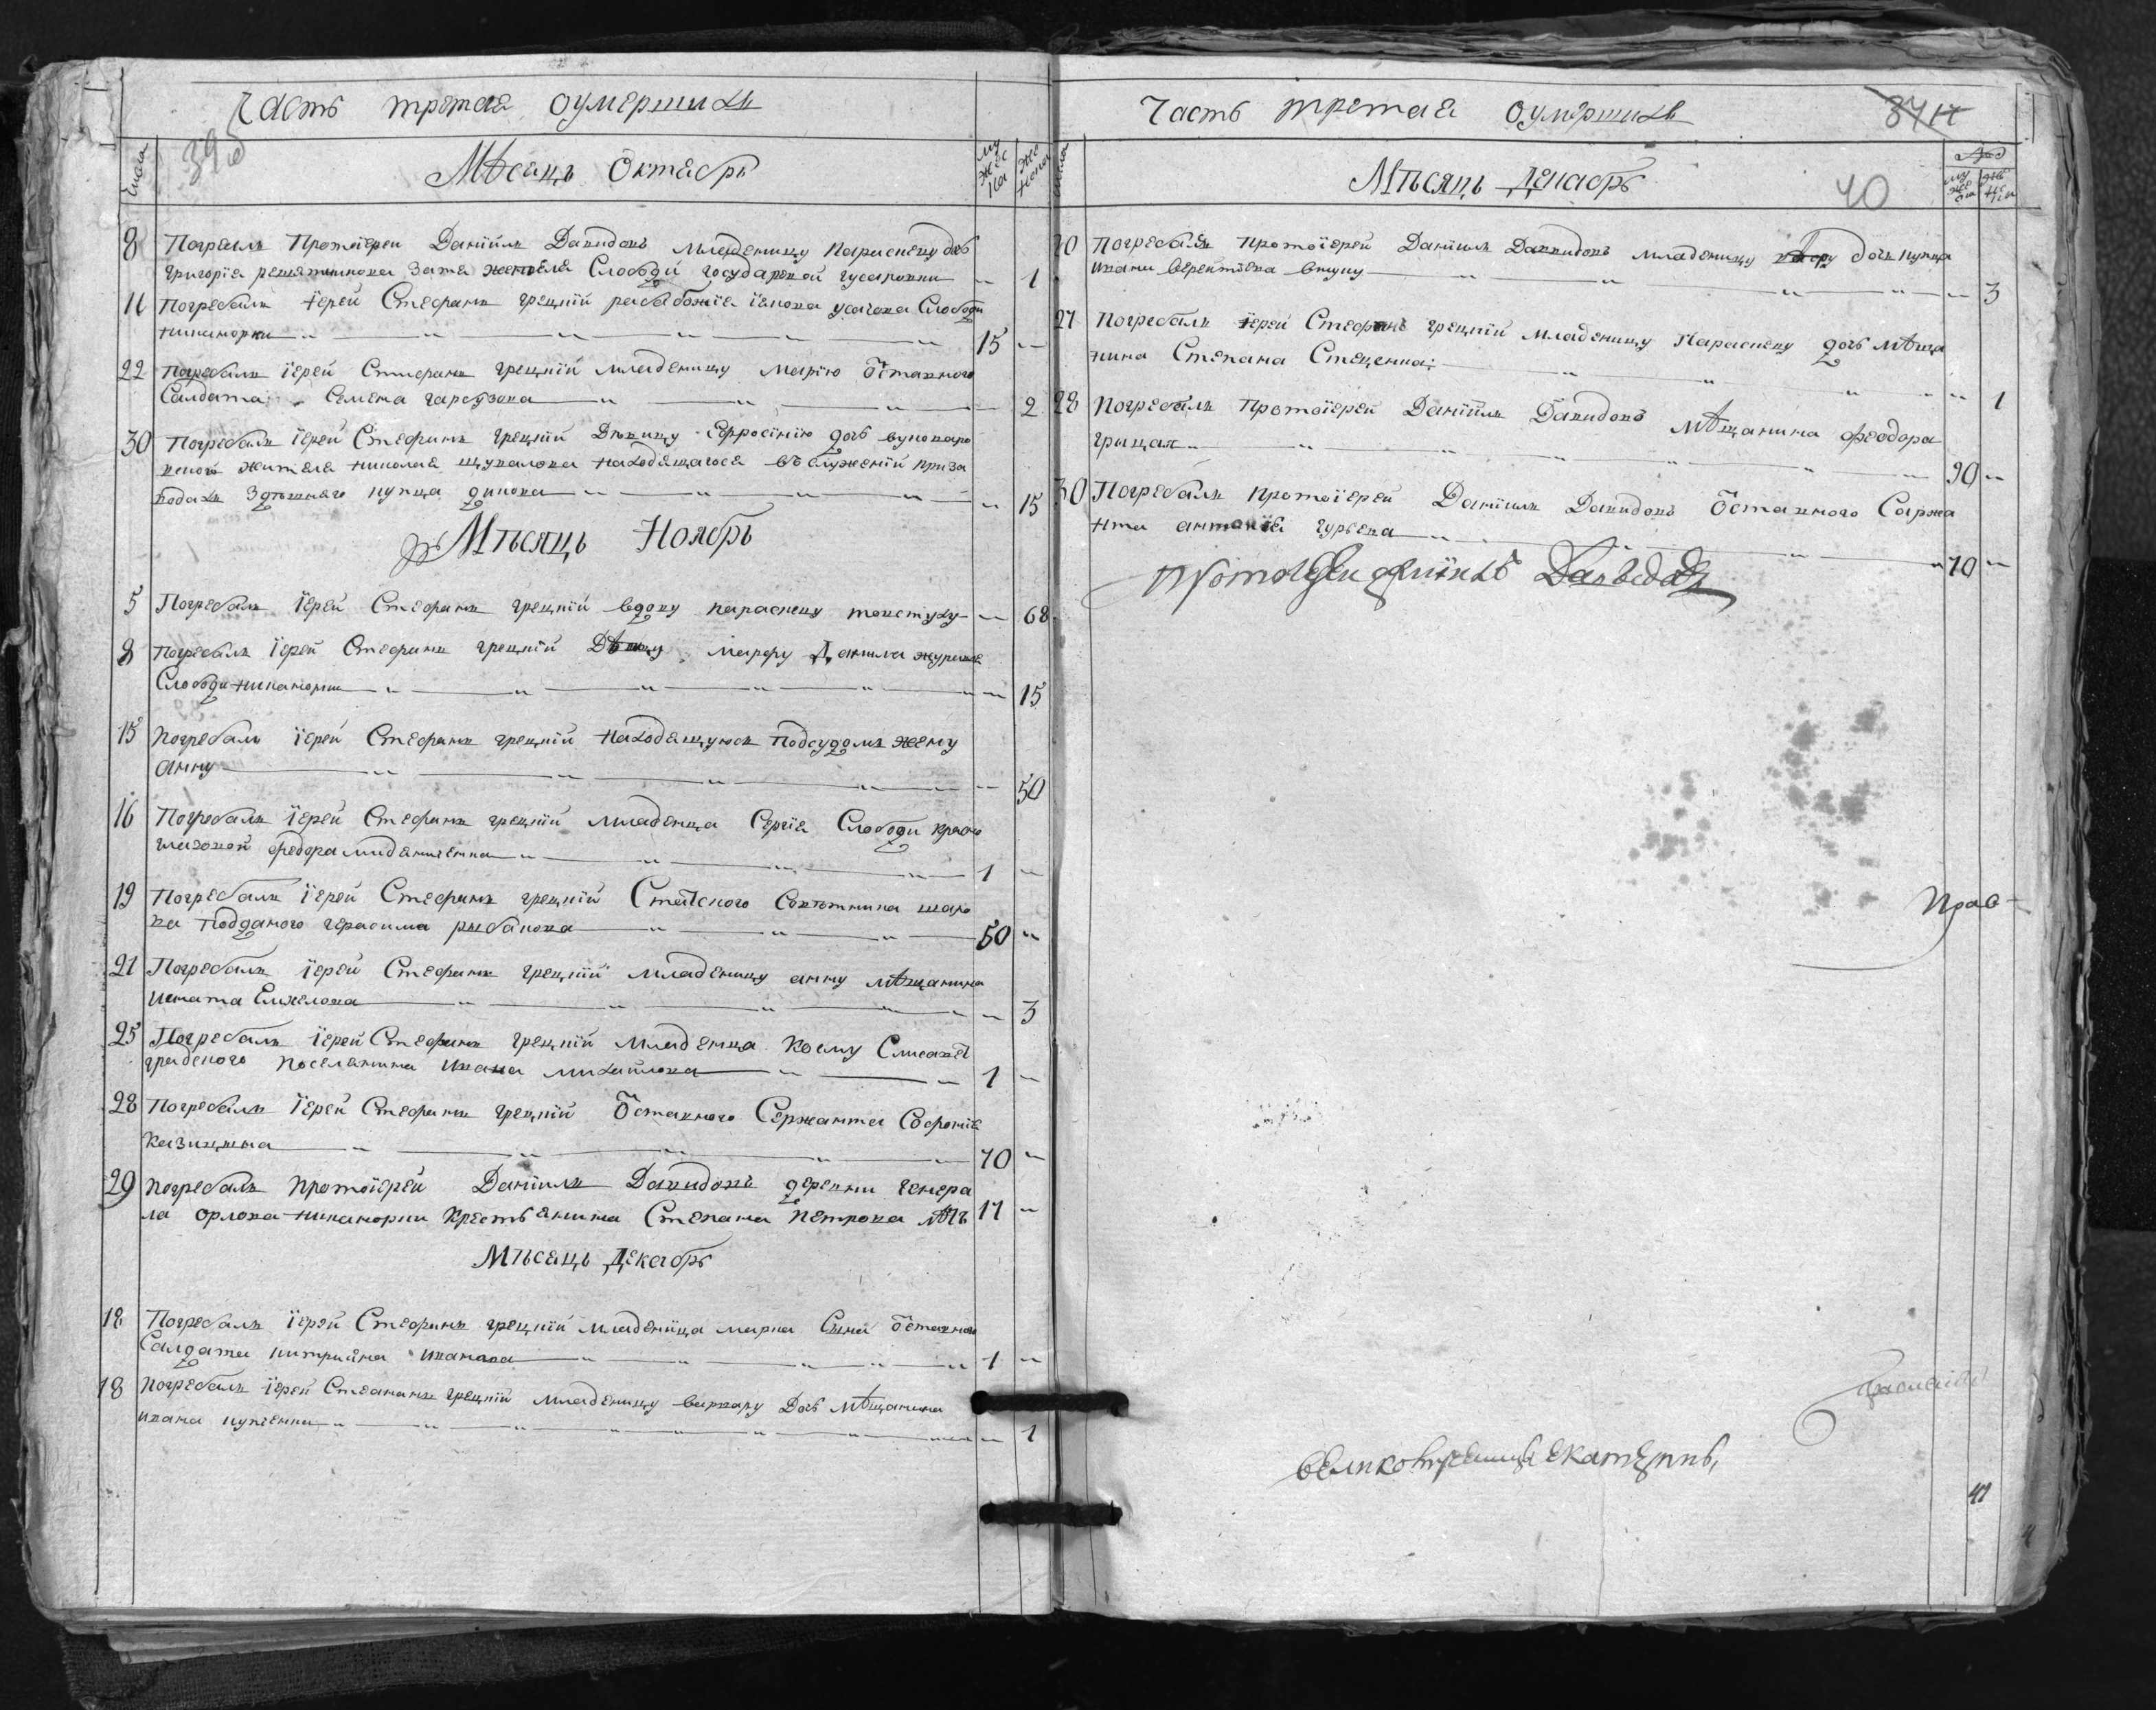 Часть третая оумершихъ
39
числа
Мѣсяць Октябрь
му жес ка
же нска
8 Погребалъ Протоіерей Даніилъ Давидовъ младеницу Параскеву дочь
Григорія решетникова зятя жителя Слободи государской гусаровки 1
11 Погребалъ іерей Стефанъ грецкій раба божія іякова усачова Слободи
никанорки 15
22 Погребалъ іерей Стефанъ грецкій младеницу Марію Ѿставного
Салдата Семена 2
30 Погребалъ іерей Стефанъ грецкій Дѣвицу Ефросінію дочь
жителя николая щукалова находящагося въ служеніи при за
водахъ здѣшнаго купца динова 15
Мѣсяць Ноябрь
5 Погребалъ іерей Стефанъ грецкій вдову параскеву товстуху 68
8 Погребалъ іерей Стефанъ грецкій Дѣвицу Марфу Данила
Слободи никанорки 15
15 Погребалъ іерей Стефанъ грецкій находящуюсь подсудомъ жену
анну 50
16 Погребалъ іерей Стефанъ грецкій младенца Сергія Слободи красно
глазовой федора 1
19 Погребалъ іерей Стефанъ грецкій Статского Совѣтника шаро
ва подданого герасима рибакова 50
21 Погребалъ іерей Стефанъ грецкій младеницу анну мѣщанина
игната Емхелова 3
25 Погребалъ іерей Стефанъ грецкій младенца Козму Елисавет
градского поселянина ивана михайлова 1
28 Погребалъ іерей Стефанъ грецкій Ѿставного Сержанта Софронія
казинкина 70
29 погребалъ протоіерей Даніилъ Давидовъ деревни генера
ла орлова никанорки крестьянина Степана петрова лѣтъ 17
Мѣсяць Декабрь
18 Погребалъ іерей Стефанъ грецкій младенца марка Сына Ѿставного
Салдата китрияна иванова 1
18 Погребалъ іерей Стефанъ грецкій младеницу варвару Дочь мѣщанина
ивана 1
Часть третая оумершихъ
Мѣсяць Декабрь
40
20 Погребалъ протоіерей Даніилъ Давидовъ младеницу дочь купца
ивана 3
27 Погребалъ іерей Стефанъ грецкій младеницу Параскеву дочь мѣща
нина Степана Стеценка 1
28 Погребалъ Протоіерей Даніилъ Давидовъ мѣщанина феодора
грицая 90
30 Погребалъ протоіерей Даніилъ Давидовъ Ѿставного Сержа
нта антонія гурьева 70
протоіерей Даніилъ Давидовъ
великомученици Екатерины
41